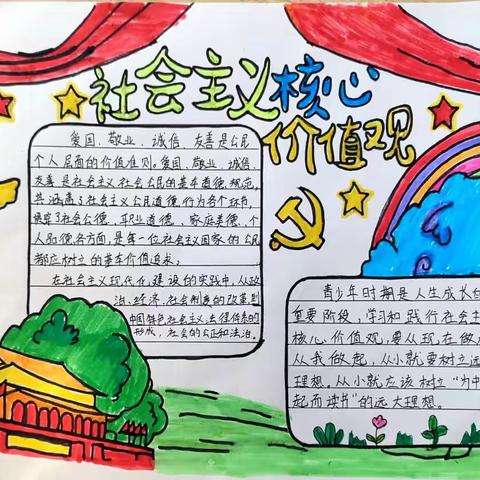 社会主义核心
价值观
爱国、敬业、诚信、友善是公民
个人层面的价值准则。爱国、敬业、诚信、
友善是社会主义社会公民的基本道德规范,
其涵盖了社会主义公民道德行为各个环节,
贯穿了社会公德、职业道德、家庭美德、个
人品德各方面,是每一位社会主义国家的公民
都应树立的基本价值追求。
在社会主义现代化建设的实践中,从政
治、经济、社会制度的改革到
中国特色社会主义法律体系的
形成,社会的公正和法治。
青少年时期是人生成长的
重要阶段,学习和践行社会主
核心价值观,要从现在做
从我做起,从小就要树立远
理想。从小就应该树立“为中
起而读书”的远大理想。